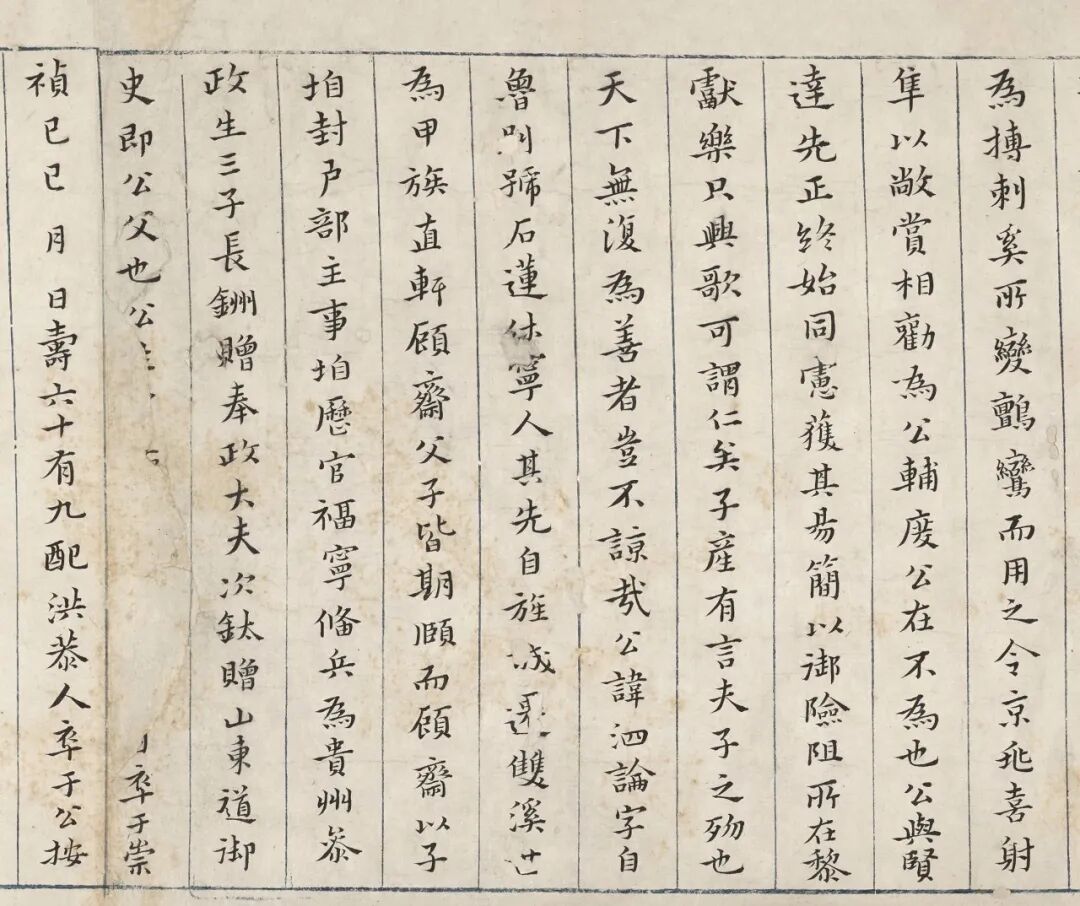 為摶刺奚所變鸇鸞而用之令京兆喜射
隼以敞賞相勸為公輔廋公在不為也公與賢
達先正終始同憲獲其易簡以御險阻所在黎
獻樂只興歌可謂仁矣子產有言夫子之歾也
天下無復為善者豈不諒哉公諱泗論字自
魯別號石蓮休寧人其先自旌城遷雙溪世
為甲族直軒頤齋父子皆期頤而頤齋以子
垍封戶部主事垍歷官福寧脩兵為貴州叅
政生三子長鉶贈奉政大夫次鈦贈山東道御
史即公父也公 卒于崇
禎己巳 月 日壽六十有九配洪恭人卒于公按